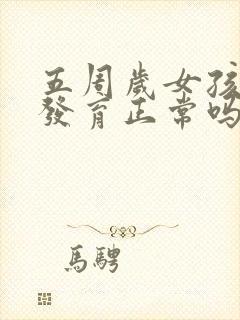 五周歲女孩
發育正常嗎
馬騁